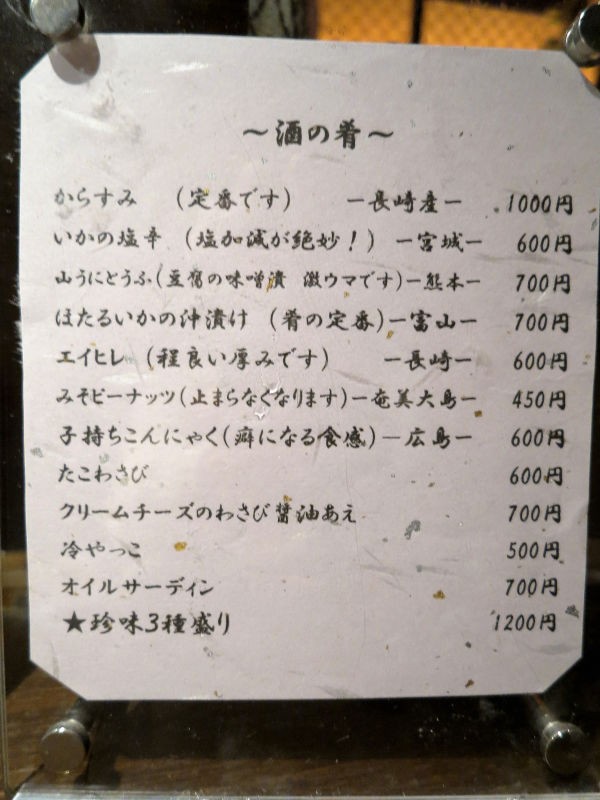 ～酒の肴～
からすみ （定番です） ー長崎産ー 1000円
いかの塩辛 （塩加減が絶妙！） ー宮城ー 600円
山うにとうふ（豆腐の味噌漬 激ウマです）ー熊本ー 700円
ほたるいかの沖漬け （肴の定番）ー富山ー 700円
エイヒレ （程良い厚みです） ー長崎ー 600円
みそピーナッツ（止まらなくなります）ー奄美大島ー 450円
子持ちこんにゃく（癖になる食感）ー広島ー 600円
たこわさび 600円
クリームチーズのわさび醤油あえ 700円
冷やっこ 500円
オイルサーディン 700円
★珍味3種盛り 1200円